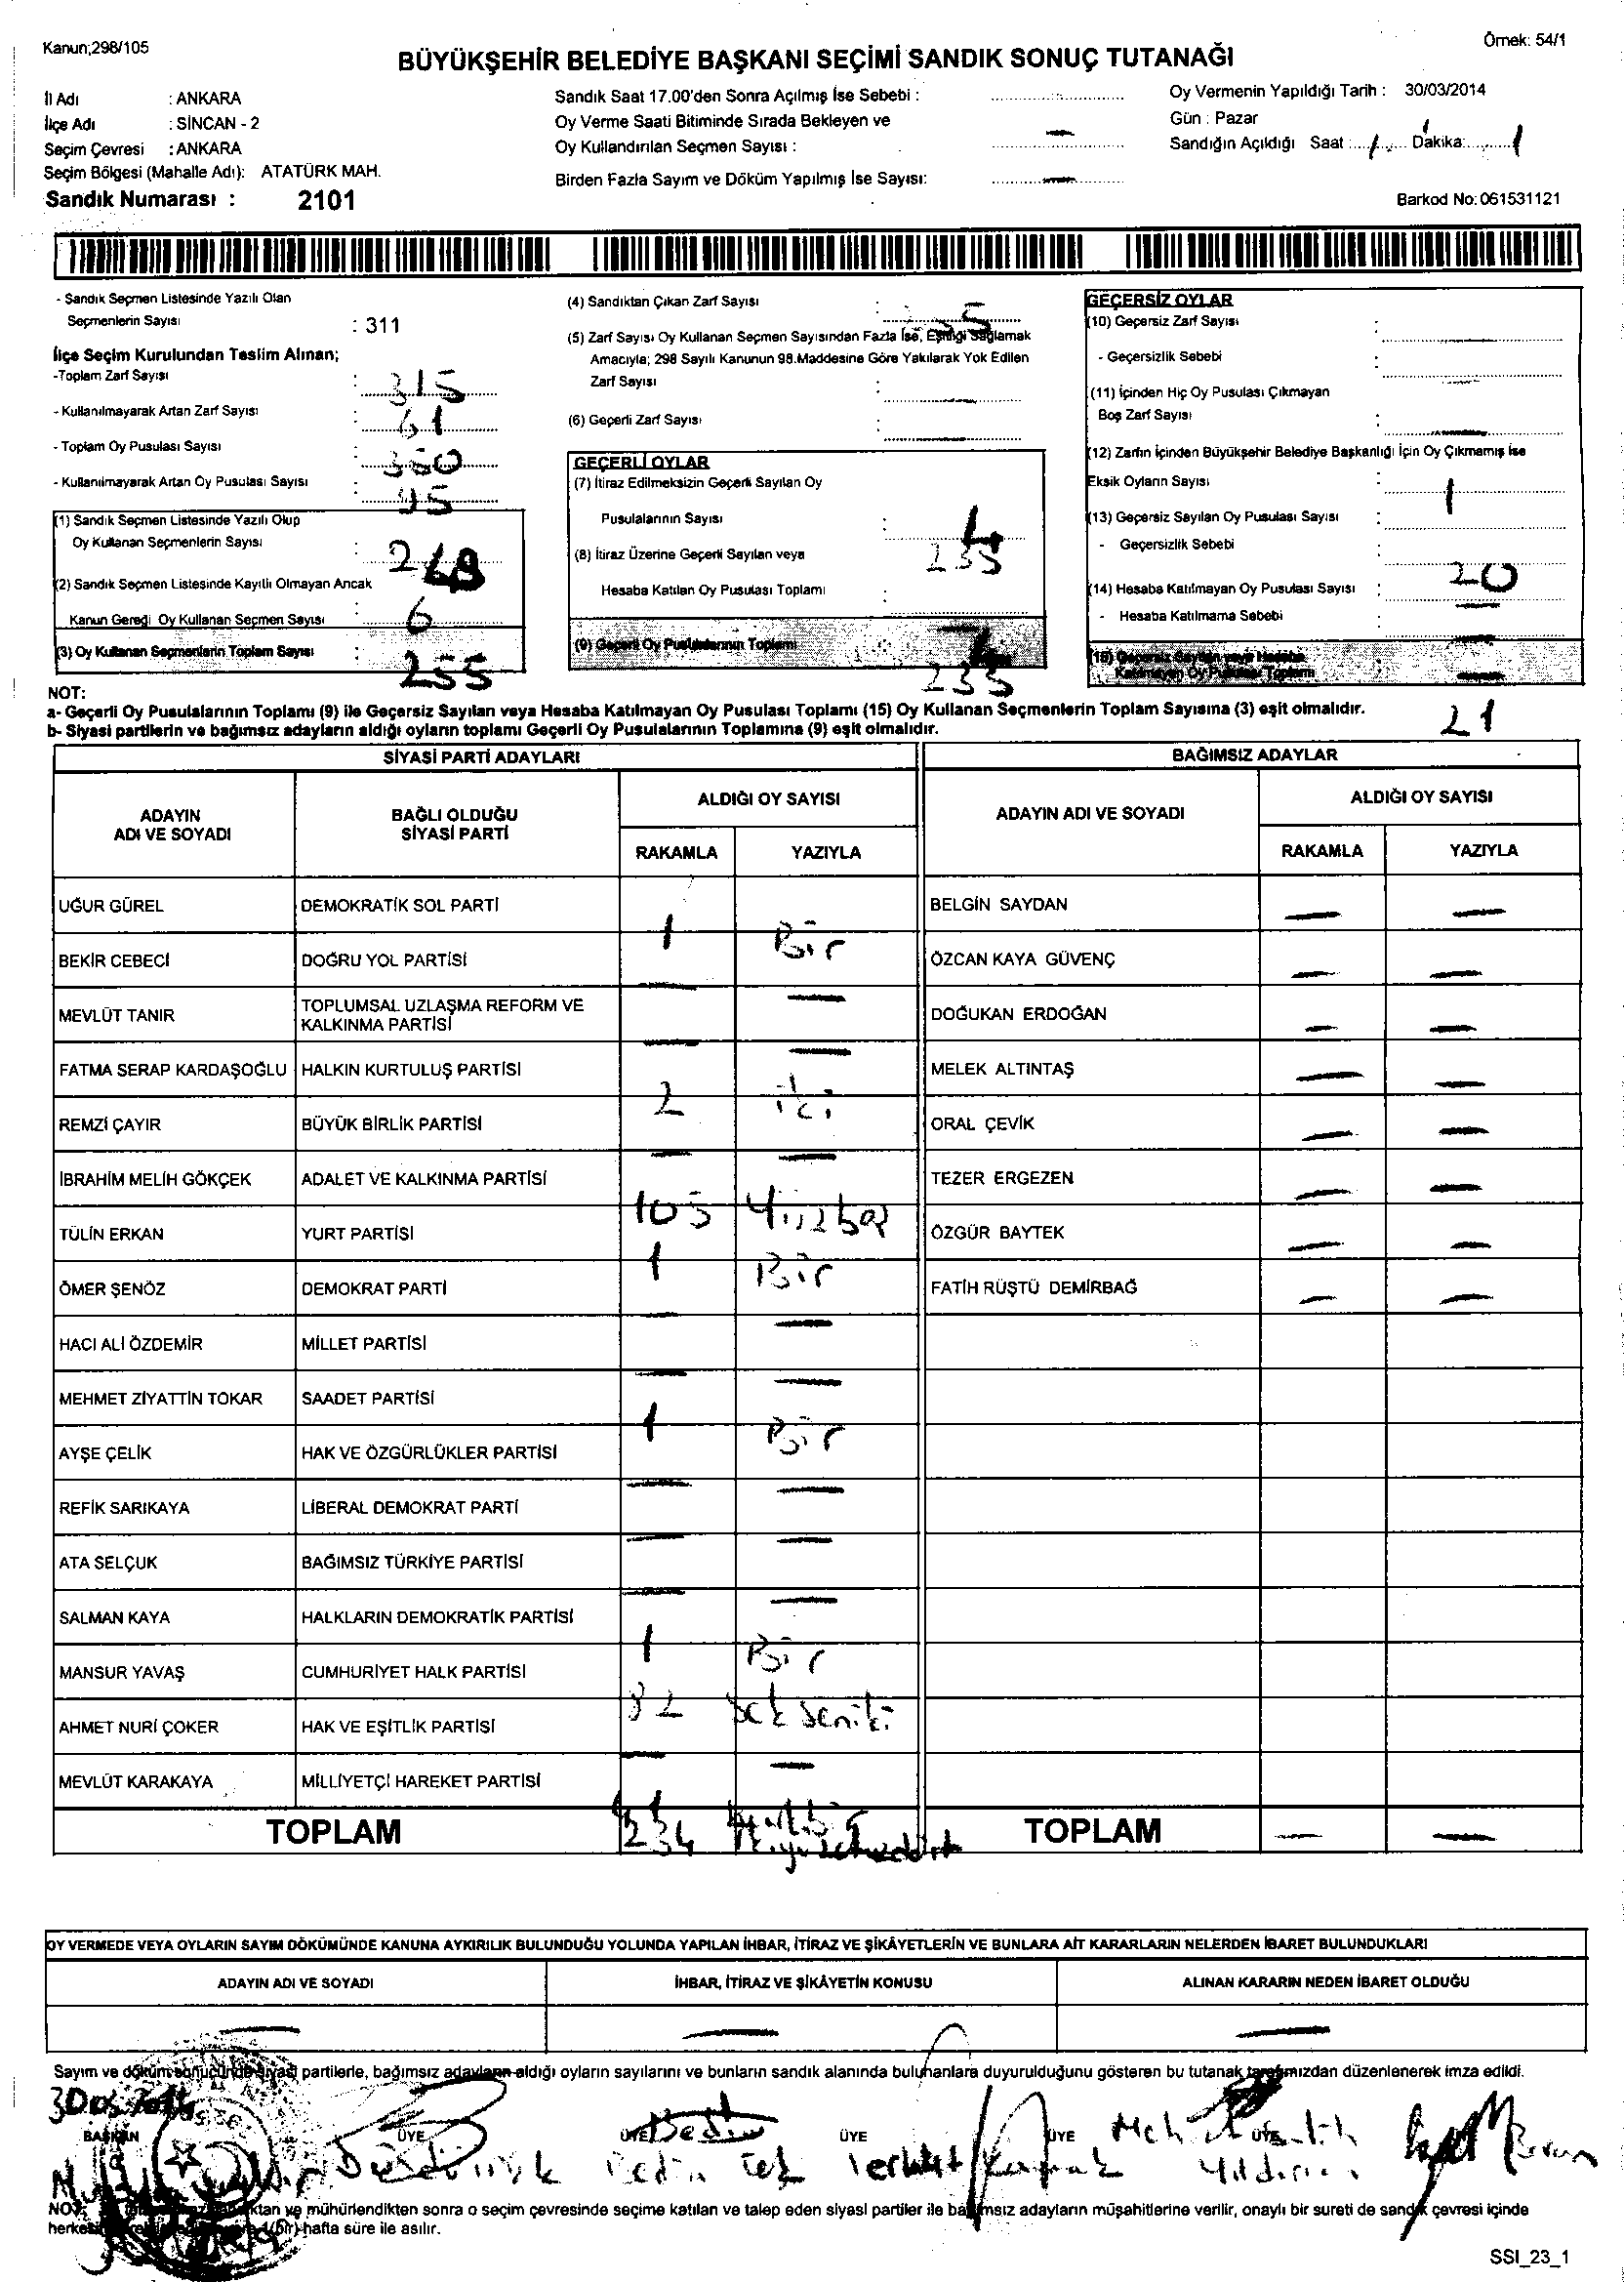 Kanun;298/105
Örnek: 54/1
BÜYÜKŞEHİR BELEDİYE BAŞKANI SEÇİMİ SANDIK SONUÇ TUTANAĞI
İl Adı : ANKARA
İlçe Adı : SİNCAN - 2
Seçim Çevresi : ANKARA
Seçim Bölgesi (Mahalle Adı): ATATÜRK MAH.
Sandık Numarası : 2101
Sandık Saat 17.00'den Sonra Açılmış İse Sebebi :
Oy Verme Saati Bitiminde Sırada Bekleyen ve
Oy Kullandırılan Seçmen Sayısı :
Birden Fazla Sayım ve Döküm Yapılmış İse Sayısı:
Oy Vermenin Yapıldığı Tarih : 30/03/2014
Gün : Pazar
Sandığın Açıldığı Saat : Dakika:
Barkod No: 061531121
- Sandık Seçmen Listesinde Yazılı Olan
Seçmenlerin Sayısı : 311
İlçe Seçim Kurulundan Teslim Alınan;
-Toplam Zarf Sayısı : 315
- Kullanılmayarak Artan Zarf Sayısı : 61
- Toplam Oy Pusulası Sayısı : 350
- Kullanılmayarak Artan Oy Pusulası Sayısı : 95
(1) Sandık Seçmen Listesinde Yazılı Olup
Oy Kullanan Seçmenlerin Sayısı :
(2) Sandık Seçmen Listesinde Kayıtlı Olmayan Ancak
Kanun Gereği Oy Kullanan Seçmen Sayısı : 6
(3) Oy Kullanan Seçmenlerin Toplam Sayısı : 255
(4) Sandıktan Çıkan Zarf Sayısı :
(5) Zarf Sayısı Oy Kullanan Seçmen Sayısından Fazla İse, Eşitliği Sağlamak
Amacıyla; 298 Sayılı Kanunun 98.Maddesine Göre Yakılarak Yok Edilen
Zarf Sayısı :
(6) Geçerli Zarf Sayısı :
GEÇERLİ OYLAR
(7) İtiraz Edilmeksizin Geçerli Sayılan Oy
Pusulalarının Sayısı :
(8) İtiraz Üzerine Geçerli Sayılan veya
Hesaba Katılan Oy Pusulası Toplamı :
(9) Geçerli Oy Pusulalarının Toplamı :
GEÇERSİZ OYLAR
(10) Geçersiz Zarf Sayısı :
- Geçersizlik Sebebi :
(11) İçinden Hiç Oy Pusulası Çıkmayan
Boş Zarf Sayısı :
(12) Zarfın İçinden Büyükşehir Belediye Başkanlığı İçin Oy Çıkmamış İse
Eksik Oyların Sayısı : 1
(13) Geçersiz Sayılan Oy Pusulası Sayısı :
- Geçersizlik Sebebi : 20
(14) Hesaba Katılmayan Oy Pusulası Sayısı :
- Hesaba Katılmama Sebebi
(15) Geçersiz Sayılan veya Hesaba
Katılmayan Oy Pusulası Toplamı
21
NOT:
a- Geçerli Oy Pusulalarının Toplamı (9) ile Geçersiz Sayılan veya Hesaba Katılmayan Oy Pusulası Toplamı (15) Oy Kullanan Seçmenlerin Toplam Sayısına (3) eşit olmalıdır.
b- Siyasi partilerin ve bağımsız adayların aldığı oyların toplamı Geçerli Oy Pusulalarının Toplamına (9) eşit olmalıdır.
SİYASİ PARTİ ADAYLARI
BAĞIMSIZ ADAYLAR
ADAYIN ADI VE SOYADI
BAĞLI OLDUĞU SİYASİ PARTİ
ALDIĞI OY SAYISI
RAKAMLA YAZIYLA
ADAYIN ADI VE SOYADI
ALDIĞI OY SAYISI
RAKAMLA YAZIYLA
UĞUR GÜREL DEMOKRATİK SOL PARTİ BELGİN SAYDAN
1 Bir
BEKİR CEBECİ DOĞRU YOL PARTİSİ ÖZCAN KAYA GÜVENÇ
MEVLÜT TANIR TOPLUMSAL UZLAŞMA REFORM VE KALKINMA PARTİSİ DOĞUKAN ERDOĞAN
FATMA SERAP KARDAŞOĞLU HALKIN KURTULUŞ PARTİSİ MELEK ALTINTAŞ
2 iki
REMZİ ÇAYIR BÜYÜK BİRLİK PARTİSİ ORAL ÇEVİK
İBRAHİM MELİH GÖKÇEK ADALET VE KALKINMA PARTİSİ TEZER ERGEZEN
105
TÜLİN ERKAN YURT PARTİSİ ÖZGÜR BAYTEK
1 Bir
ÖMER ŞENÖZ DEMOKRAT PARTİ FATİH RÜŞTÜ DEMİRBAĞ
HACI ALİ ÖZDEMİR MİLLET PARTİSİ
MEHMET ZİYATTİN TOKAR SAADET PARTİSİ
1 Bir
AYŞE ÇELİK HAK VE ÖZGÜRLÜKLER PARTİSİ
REFİK SARIKAYA LİBERAL DEMOKRAT PARTİ
ATA SELÇUK BAĞIMSIZ TÜRKİYE PARTİSİ
SALMAN KAYA HALKLARIN DEMOKRATİK PARTİSİ
1 Bir
MANSUR YAVAŞ CUMHURİYET HALK PARTİSİ
82 Sekseniki
AHMET NURİ ÇOKER HAK VE EŞİTLİK PARTİSİ
MEVLÜT KARAKAYA MİLLİYETÇİ HAREKET PARTİSİ
TOPLAM 234 TOPLAM
OY VERMEDE VEYA OYLARIN SAYIM DÖKÜMÜNDE KANUNA AYKIRILIK BULUNDUĞU YOLUNDA YAPILAN İHBAR, İTİRAZ VE ŞİKÂYETLERİN VE BUNLARA AİT KARARLARIN NELERDEN İBARET BULUNDUKLARI
ADAYIN ADI VE SOYADI İHBAR, İTİRAZ VE ŞİKÂYETİN KONUSU ALINAN KARARIN NEDEN İBARET OLDUĞU
Sayım ve döküm sonucunda siyasi partilerle, bağımsız adayların aldığı oyların sayılarını ve bunların sandık alanında bulunanlara duyurulduğunu gösteren bu tutanak tarafımızdan düzenlenerek imza edildi.
BAŞKAN ÜYE ÜYE ÜYE ÜYE ÜYE
Bedia Tek
Yıldırım
NOT: mühürlendikten sonra o seçim çevresinde seçime katılan ve talep eden siyasi partiler ile bağımsız adayların müşahitlerine verilir, onaylı bir sureti de sandık çevresi içinde
hafta süre ile asılır.
SSI_23_1